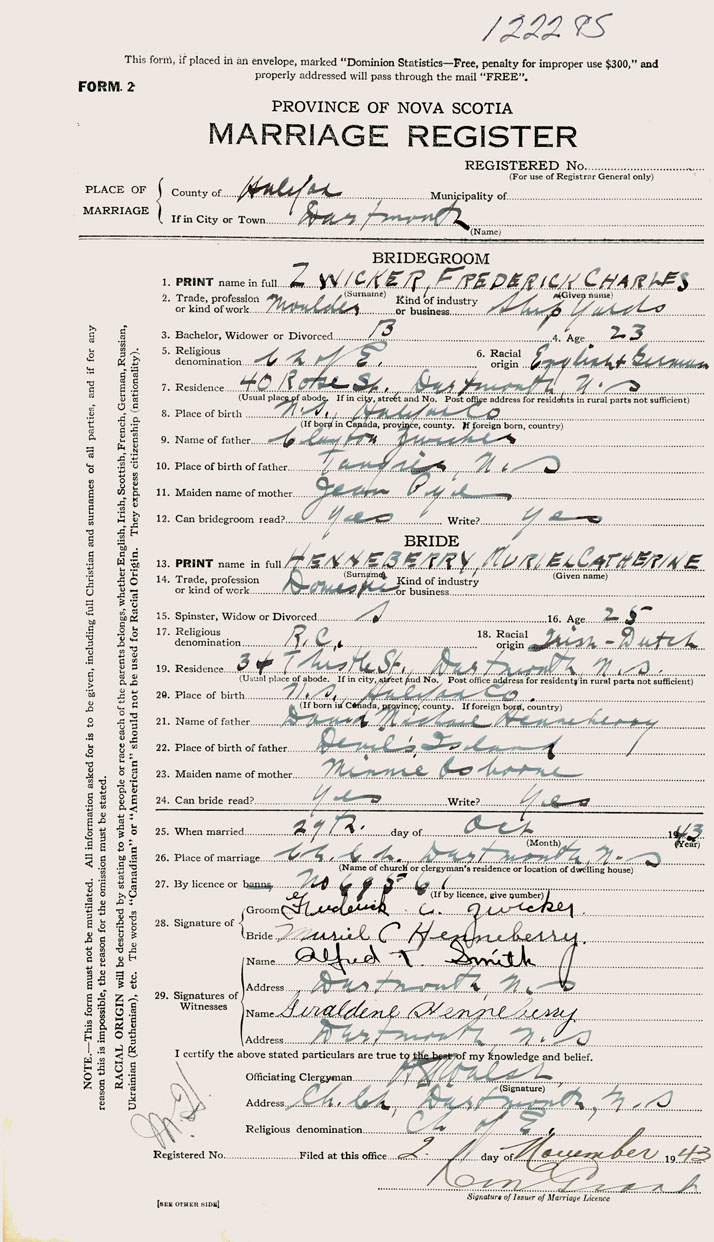 122285
This form, if placed in an envelope, marked "Dominion Statistics—Free, penalty for improper use $300," and
properly addressed will pass through the mail "FREE".
FORM. 2
PROVINCE OF NOVA SCOTIA
MARRIAGE REGISTER
REGISTERED No.
(For use of Registrar General only)
PLACE OF MARRIAGE
County of Halifax Municipality of
If in City or Town Dartmouth
(Name)
BRIDEGROOM
1. PRINT name in full ZWICKER, FREDERICK CHARLES
(Surname) (Given name)
2. Trade, profession or kind of work Moulder Kind of industry or business Ship Yards
3. Bachelor, Widower or Divorced B 4. Age 23
5. Religious denomination Ch of E. 6. Racial origin English & German
7. Residence 40 Rose St., Dartmouth, N.S
(Usual place of abode. If in city, street and No. Post office address for residents in rural parts not sufficient)
8. Place of birth N.S., Halifax Co
(If born in Canada, province, county. If foreign born, country)
9. Name of father Clayton Zwicker
10. Place of birth of father Tangier, N.S
11. Maiden name of mother Jean Pye
12. Can bridegroom read? Yes Write? Yes
BRIDE
13. PRINT name in full HENNEBERRY, MURIEL CATHERINE
(Surname) (Given name)
14. Trade, profession or kind of work Domestic Kind of industry or business
15. Spinster, Widow or Divorced S 16. Age 25
17. Religious denomination R.C. 18. Racial origin Irish-Dutch
19. Residence 34 Thistle St., Dartmouth N.S.
(Usual place of abode. If in city, street and No. Post office address for residents in rural parts not sufficient)
20. Place of birth N.S., Halifax Co.
(If born in Canada, province, county. If foreign born, country)
21. Name of father David Michael Henneberry
22. Place of birth of father Devil's Island
23. Maiden name of mother Minnie Osborne
24. Can bride read? Yes Write? Yes
25. When married 29th. day of Oct 1943
(Month) (Year)
26. Place of marriage Ch. Ch., Dartmouth, N.S
(Name of church or clergyman's residence or location of dwelling house)
27. By licence or banns No
(If by licence, give number)
28. Signature of
Groom Frederick C. Zwicker.
Bride Muriel C Henneberry.
29. Signatures of Witnesses
Name Alfred T. Smith
Address Dartmouth, N.S
Name Geraldine Henneberry
Address Dartmouth N.S
I certify the above stated particulars are true to the best of my knowledge and belief.
Officiating Clergyman
(Signature)
Address Ch. Ch., Dartmouth, N.S
Religious denomination Ch of E.
Registered No. Filed at this office 2. day of November 1943
Signature of Issuer of Marriage Licence
[SEE OTHER SIDE]
NOTE.—This form must not be mutilated. All information asked for is to be given, including full Christian and surnames of all parties, and if for any
reason this is impossible, the reason for the omission must be stated.
RACIAL ORIGIN will be described by stating to what people or race each of the parents belongs, whether English, Irish, Scottish, French, German, Russian,
Ukrainian (Ruthenian), etc. The words "Canadian" or "American" should not be used for Racial Origin. They express citizenship (nationality).